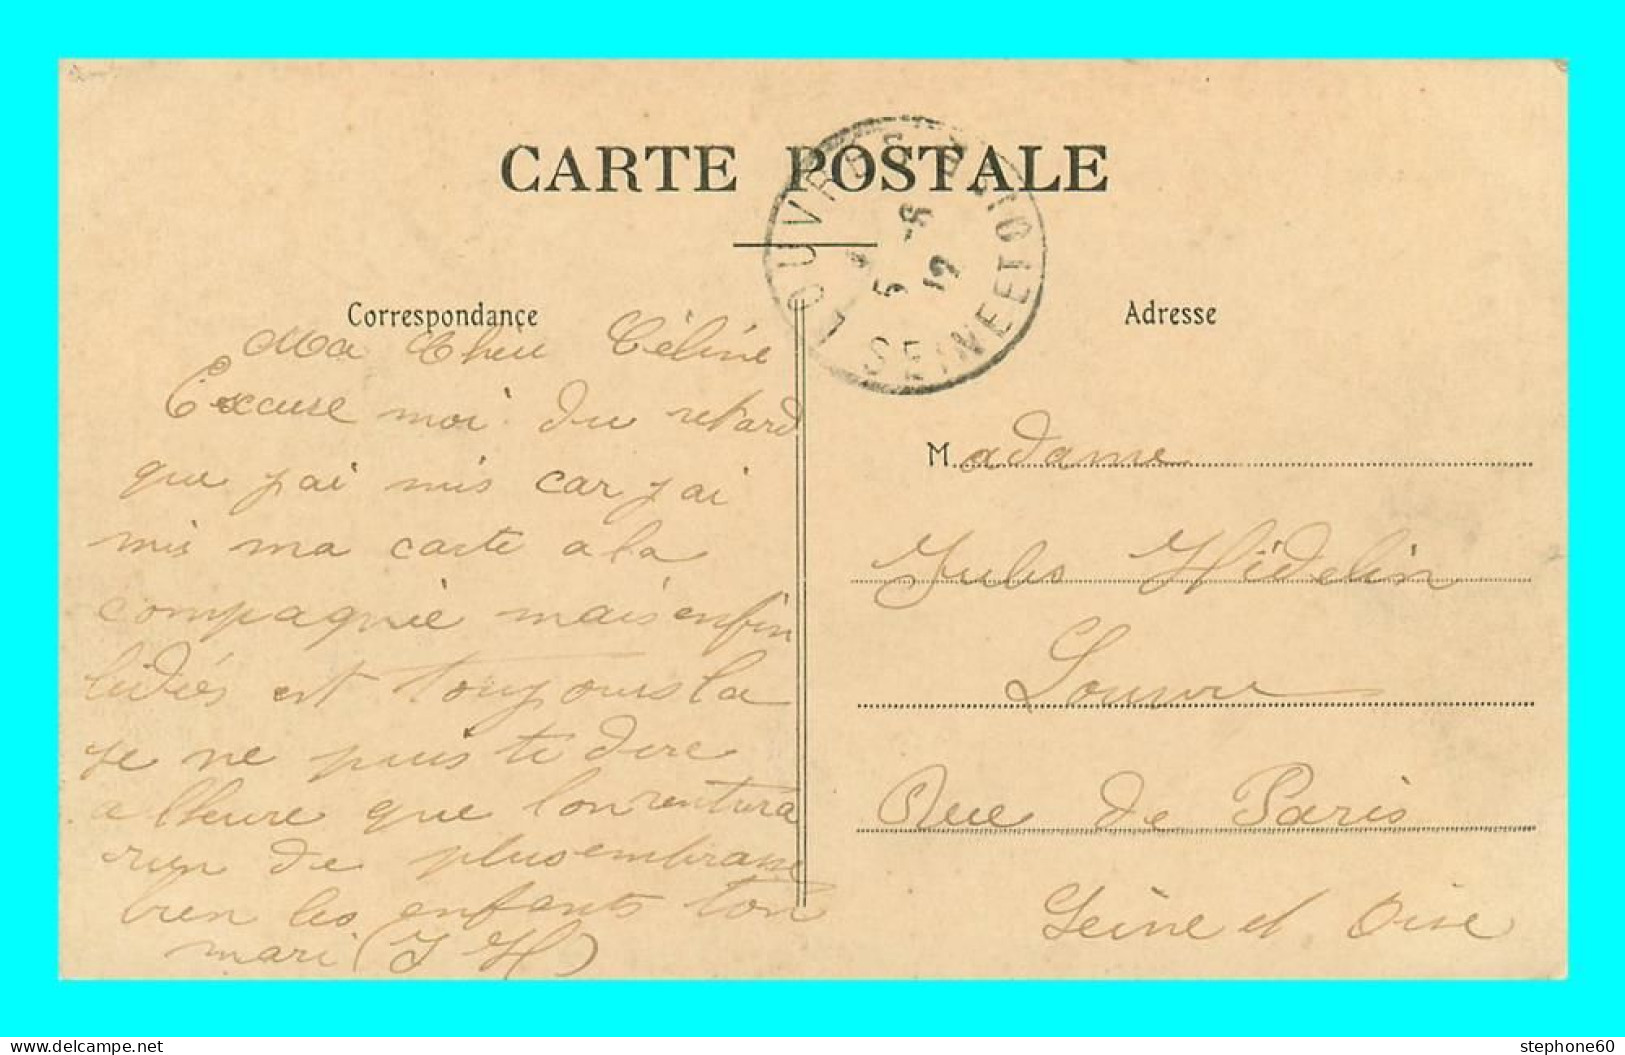 CARTE POSTALE
LOUVRES
SEINE ET OISE
5 -6
12
Correspondance
Ma Cheri Céline
Excuse moi du retard
que j'ai mis car j ai
mis ma carte a la
compagnie mais enfin
lidiés est toujours la
je ne puis te dire
a lheure que lon rentrera
rien de plus embrasse
bien les enfants ton
mari (J H)
Adresse
Madame
Jules Hidelin
Louvre
Rue de Paris
Seine et Oise
www.delcampe.net
stephone60